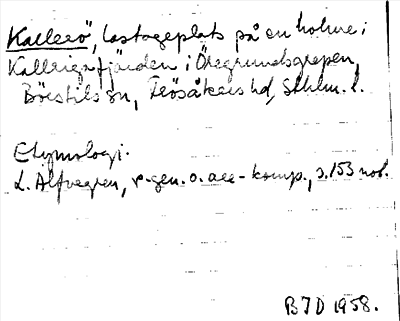 Kallerö, lastageplats på en holme i
Kallrigafjärden i Öregrundsgrepen,
Börstils sn, Frösåkers hd, Sthlm. l.
Etymologi.
L. Alfvegren, r-gen. o. acc-komp., s. 153 not.
BJD 1958.